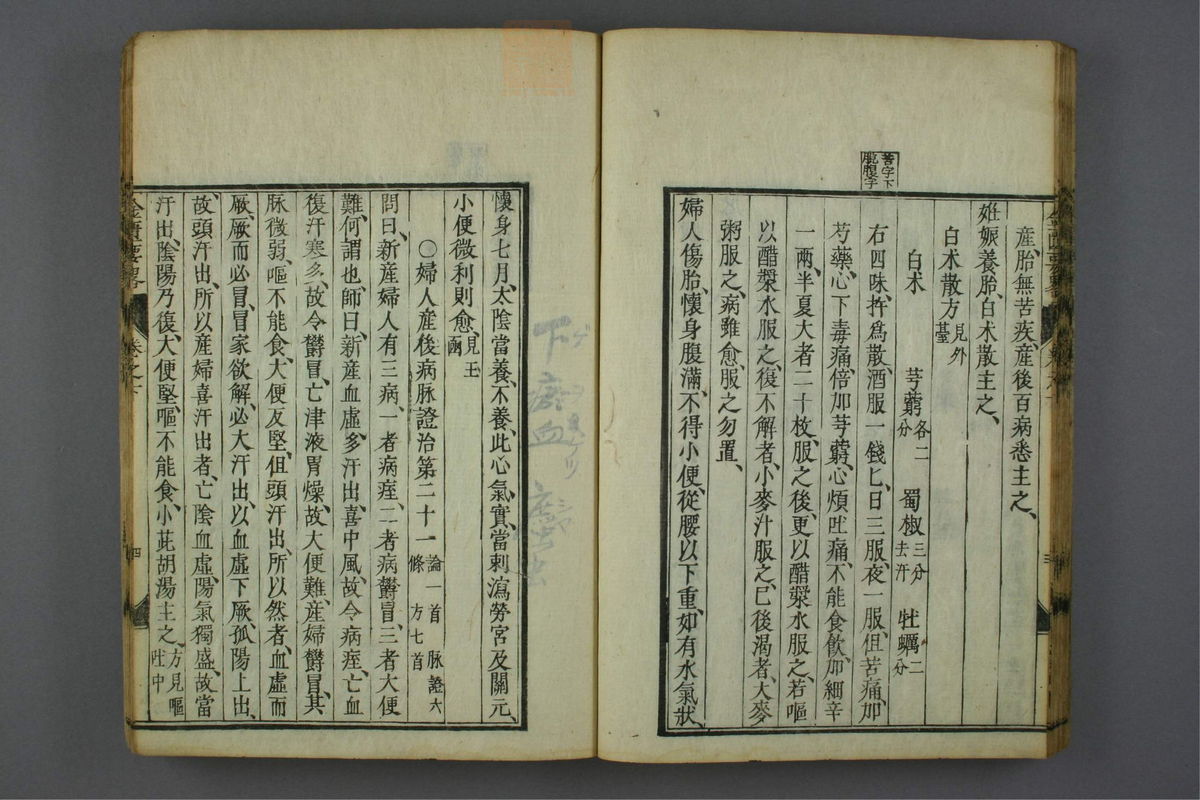 苦字下
脫腹字
產、胎無苦疾、產後百病悉主之、
妊娠養胎、白朮散主之、
白朮散方 見外臺
白朮 芎藭 各二分 蜀椒 三分去汗 牡蠣 二分
右四味、杵爲散、酒服一錢匕、日三服、夜一服、但苦痛、加
芍藥、心下毒痛、倍加芎藭、心煩吐痛、不能食飮、加細辛
一兩、半夏大者二十枚、服之後更以醋漿水服之、若嘔
以醋漿水服之、復不解者、小麥汁服之、已後渴者、大麥
粥服之、病雖愈、服之勿置、
婦人傷胎、懷身腹滿、不得小便、從腰以下重、如有水氣狀、
懷身七月、太陰當養、不養、此心氣實、當刺瀉勞宮及關元、
小便微利則愈、見玉函
○婦人產後病脉證治第二十一 論一首 脉證六條 方七首
問曰、新產婦人有三病、一者病痓、二者病鬱冒、三者大便
難、何謂也、師曰、新產血虛、多汗出、喜中風、故令病痓、亡血
復汗寒多、故令鬱冒、亡津液胃燥、故大便難、產婦鬱冒、其
脉微弱、嘔不能食、大便反堅、但頭汗出、所以然者、血虛而
厥、厥而必冒、冒家欲解、必大汗出、以血虛下厥、孤陽上出、
故頭汗出、所以產婦喜汗出者、亡陰血虛、陽氣獨盛、故當
汗出、陰陽乃復、大便堅、嘔不能食、小茈胡湯主之、方見嘔吐中
金匱要略 卷之下 四